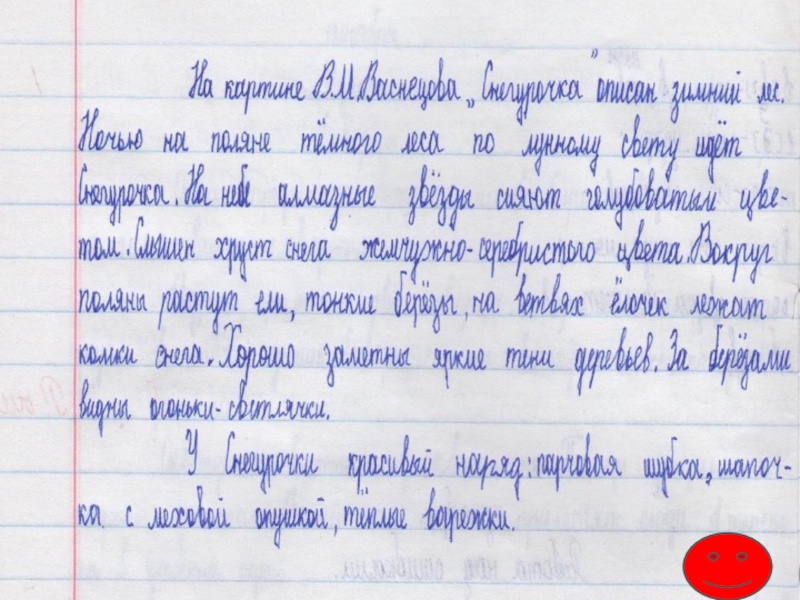 На картине В.М.Васнецова „Снегурочка" описан зимний лес.
Ночью на поляне тёмного леса по лунному свету идёт
Снегурочка. На небе алмазные звёзды сияют голубоватым цве-
том. Слышен хруст снега жемчужно-серебристого цвета. Вокруг
поляны растут ели, тонкие берёзы, на ветвях ёлочек лежат
комки снега. Хорошо заметны яркие тени деревьев. За берёзами
видны огоньки-светлячки.
У Снегурочки красивый наряд: парчовая шубка, шапоч-
ка с меховой опушкой, тёплые варежки.